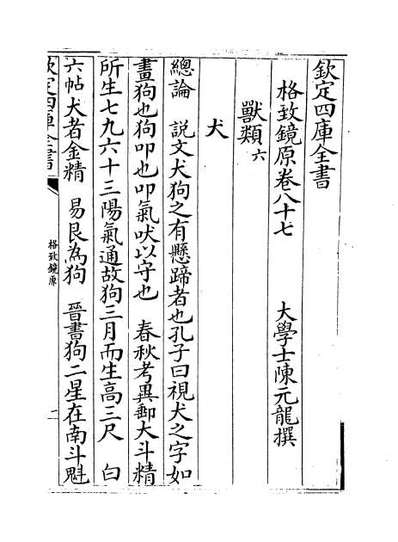 欽定四庫全書
格致鏡原卷八十七
大學士陳元龍撰
獸類六
犬
總論 説文犬狗之有懸蹄者也孔子曰視犬之字如
畫狗也狗叩也叩氣吠以守也 春秋考異郵大斗精
所生七九六十三陽氣通故狗三月而生高三尺 白
六帖犬者金精 易艮為狗 晉書狗二星在南斗魁
欽定四庫全書
格致鏡原
一